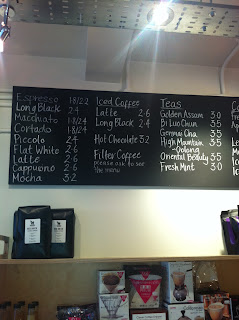 Espresso 1.8/2.2
Long Black 2.4
Macchiato 1.8/2.4
Cortado 1.8/2.4
Piccolo 2.4
Flat White 2.6
Latte 2.6
Cappuccino 2.6
Mocha 3.2
Iced Coffee
Latte 2.6
Long Black 2.4
Hot Chocolate 3.2
Filter Coffee
please ask to see
the menu
Teas
Golden Assam 3.0
Bi Luo Chun 3.5
Genmai Cha 3.5
High Mountain 3.5
Oolong
Oriental Beauty 3.5
Fresh Mint 3.0